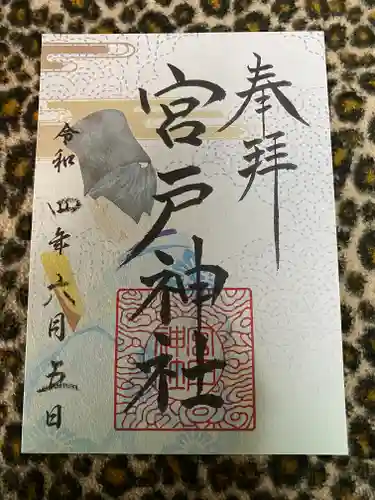 奉拝
宮戸神社
令和四年六月五日